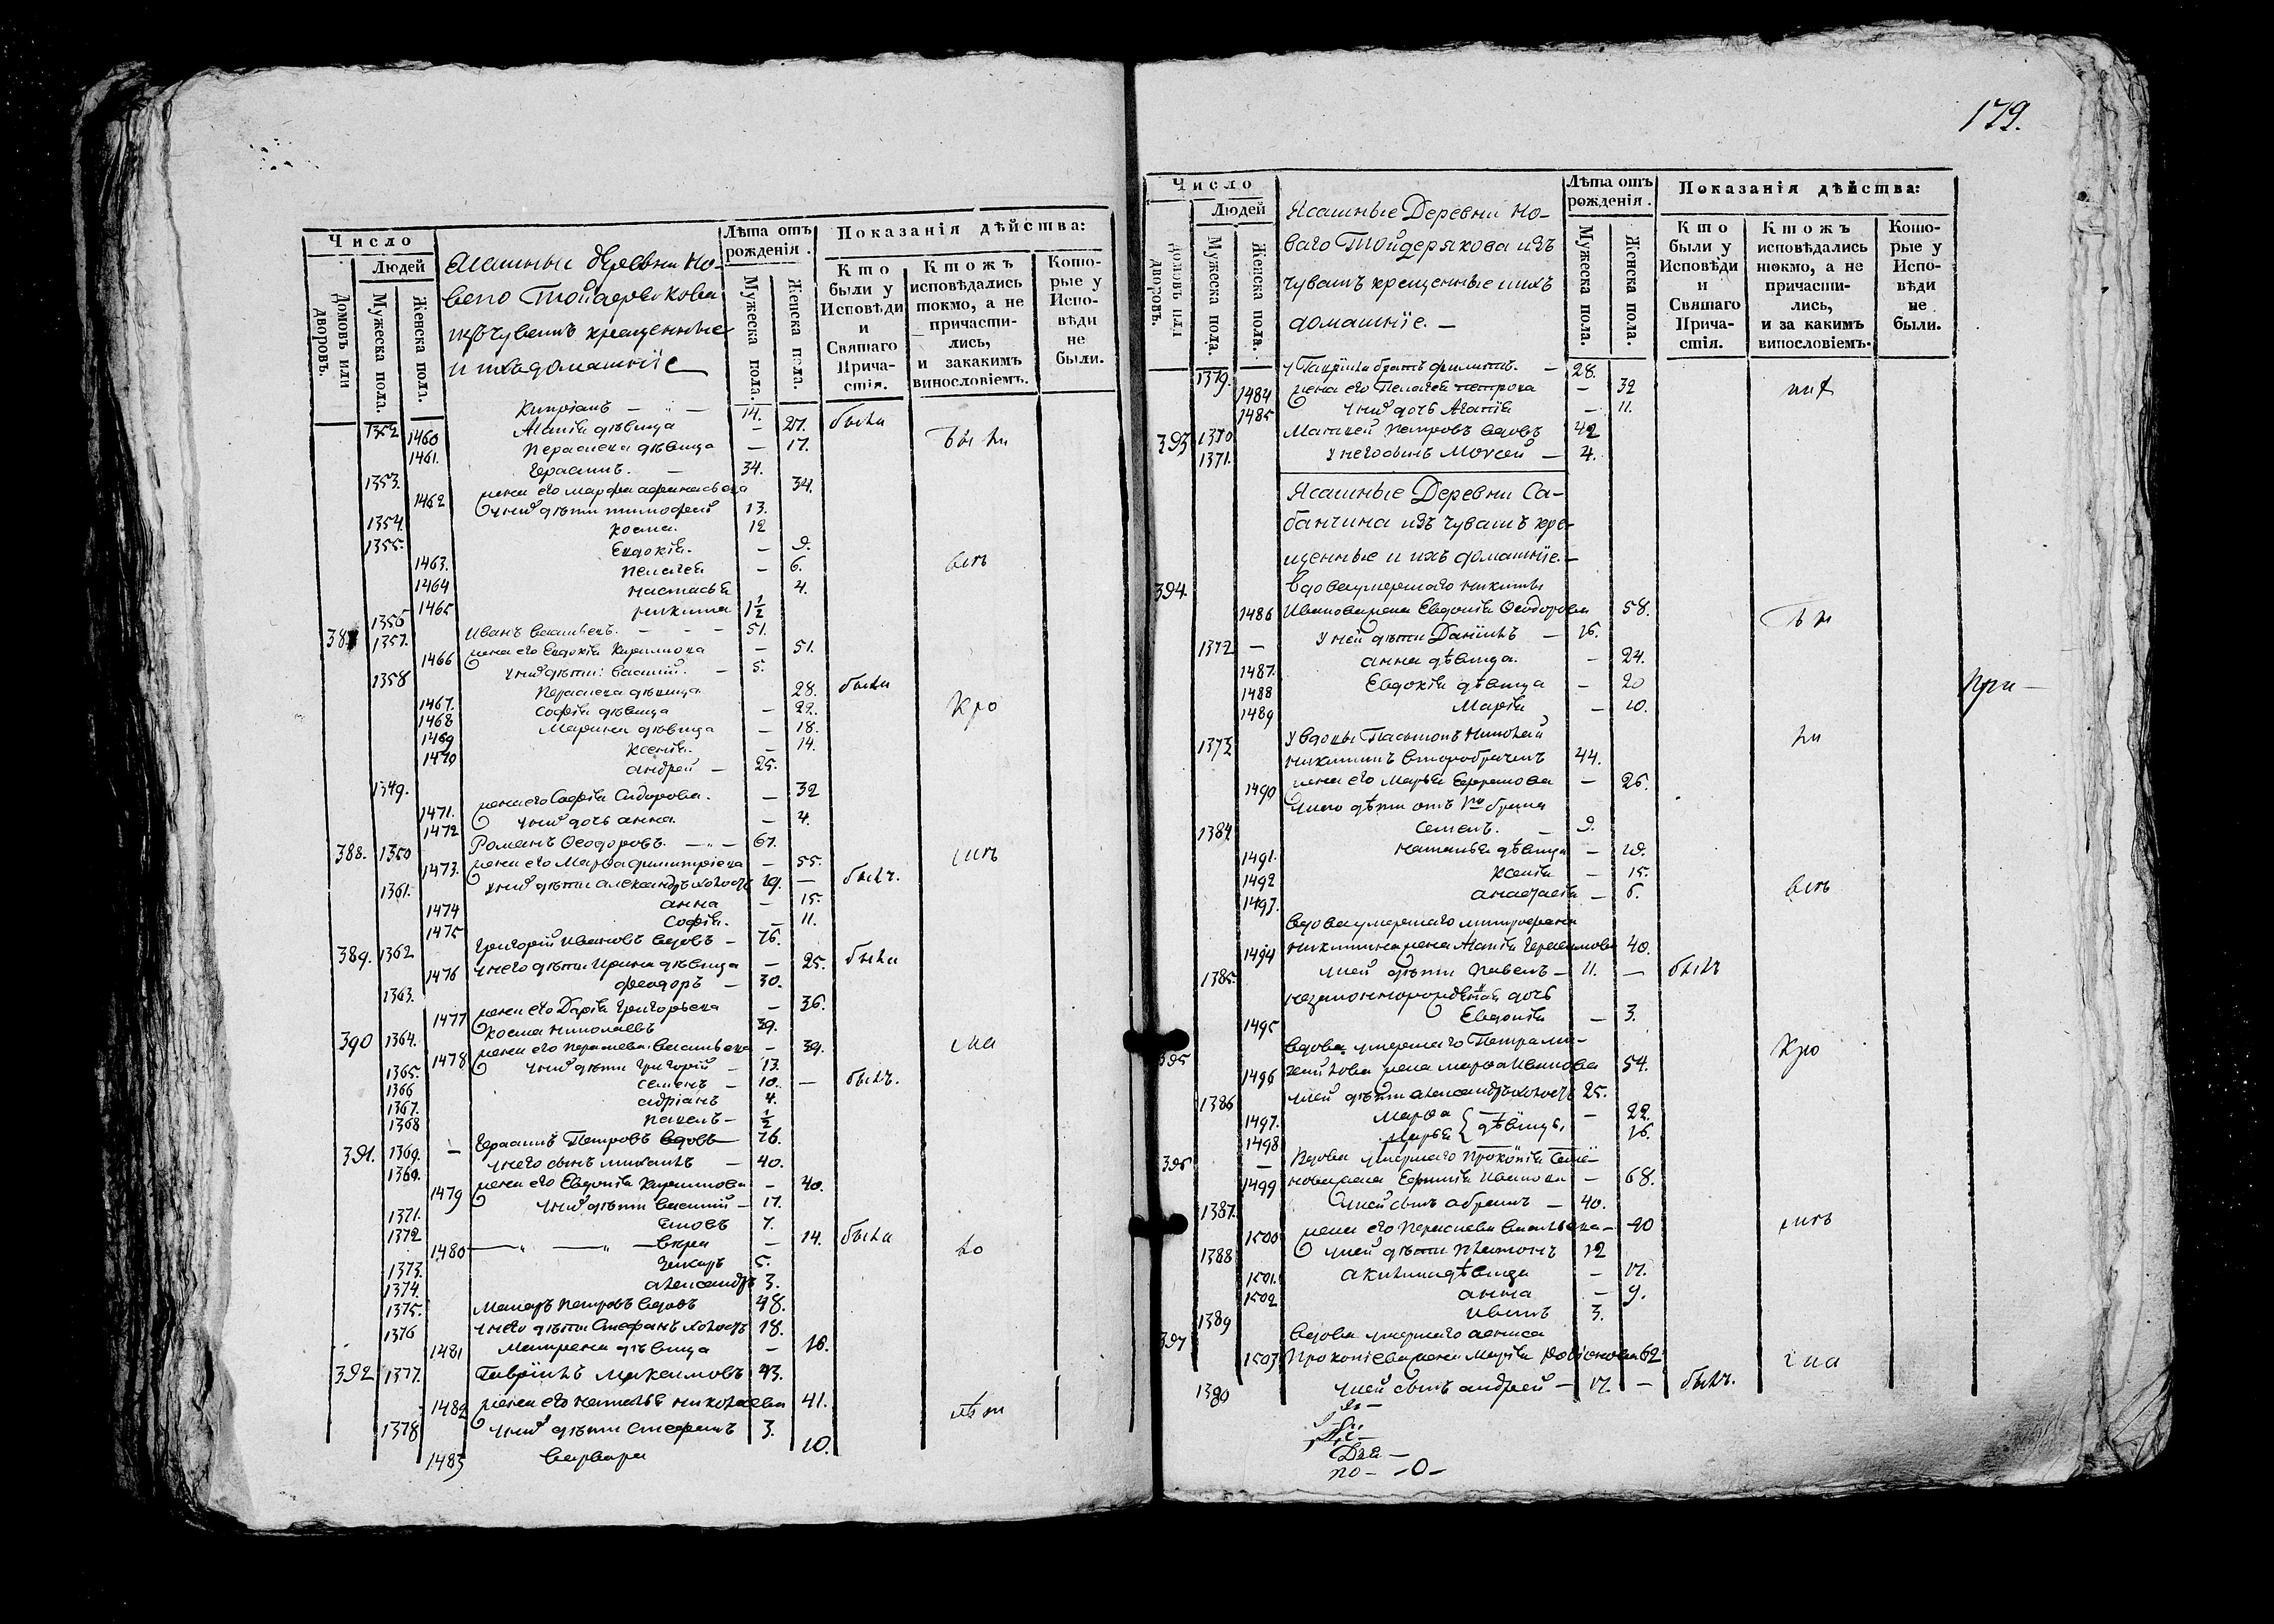 Число
Людей
Домовъ или дворовъ.
Мужеска пола.
Женска пола.
Ясашные деревни Но-
ваго Тойдерякова
изъ чувашъ крещенные
и ихъ домашнїе
Лѣта отъ рожденія.
Мужеска пола.
Женска пола.
Показанія дѣйства:
Кто были у Исповѣди и Святаго Прича-стія.
Ктожъ исповѣдались токмо, а не причасти-лись, и закакимъ винословіемъ.
Кото-рые у Испо-вѣди не были.
1352 Кипріанъ — 14.
1460 Агапія дѣвица — 27. была
1461. Параскева дѣвица — 17.
1353. Герасимъ. — 34.
1462 жена его Марфа 34.
1354. у нихъ дѣти Тимофей 13.
1355. Косма. 12
1463. Евдокія. — 9.
1464 Пелагея — 6.
1465 Настасья 4.
1356 Никита 1½
387 1357. Иванъ Васильевъ. — — — 51.
1466 жена его Евдокія Кирилова — 51.
1358 у нихъ дѣти: Василій. — 5.
1467. Параскева дѣвица 28. была
1468 Софія дѣвица — 22.
1469 Марина дѣвица — 18.
1470 Ксенія. — 14.
1349. Андрей — 25.
1471. жена его Софія Сидорова. — 32
1472 у нихъ дочь Анна. — 4.
388. 1350 Романъ Ѳеодоровъ. — „ — 67.
1473. жена его Марѳа Димитріева — 55.
1361. у нихъ дѣти Александръ холостъ 19. — былъ.
1474 Анна — 15.
1475 Софія. — 11.
389. 1362 Григорій Ивановъ вдовъ — 76.
1476 у него дѣти Ирина дѣвица — 25. была
1363. Феодоръ — 30.
1477 жена его Дарія Григорьева — 36.
390 1364. Косма Николаевъ 39.
1478 жена его Параскева Васильева — 39.
1365. у нихъ дѣти Григорій — 13.
1366 Семенъ — 10. — былъ.
1367. Адріанъ 4.
1368 Павелъ — ½
391. 1369. — Герасимъ Петровъ вдовъ 76.
1369. у него сынъ Михаилъ — 40.
1479 жена его Евдокія — 40.
1371. у нихъ дѣти Василій — 17.
1372 7.
1480 14. была
1373. 5.
1374. Александръ 3.
1375. Петровъ вдовъ 48.
1376 у него дѣти Стефанъ холостъ 18.
1481 Матрена дѣвица — 16.
392 1377. Гавріилъ Максимовъ 43.
1482 жена его Наталья Николаева 41.
1378 у нихъ дѣти Стефанъ 3.
1483 Варвара 10.
179.
Число
Людей
Домовъ или дворовъ.
Мужеска пола.
Женска пола.
Ясашные Деревни Но-
ваго Тойдерякова изъ
чувашъ крещенные и ихъ
домашнїе. —
Лѣта отъ рожденія.
Мужеска пола.
Женска пола.
Показанія дѣйства:
Кто были у Исповѣди и Святаго Прича-стія.
Ктожъ исповѣдались токмо, а не причасти-лись, и за какимъ винословіемъ.
Кото-рые у Испо-вѣди не были.
1379. у Гавріила братъ Филипъ. — 28.
1484 жена его Пелагея Петрова — 32
1485 у нихъ дочь Агапія — 11.
393 1370 Матвей Петровъ вдовъ 42
1371. у него сынъ Моѵсей — 4.
Ясашные Деревни Са-
банчина изъ чувашъ кре-
щенные и ихъ домашнїе. —
394. вдова умершаго Никиты
1486 Иванова жена Евдокія Ѳеодорова 58.
1372 — у ней дѣти Даніилъ — 16.
1487. Анна дѣвица. — 24.
1488 Евдокія дѣвица — 20
1489 Марія — 10.
При —
1373 у вдовы Пасынокъ Николай
Никитинъ второбрачен 44.
1490 жена его Марья Ефремова — 26.
у него дѣти отъ 1го брака
1384. Семенъ. — 9.
1491. Наталья дѣвица — 19.
1492 Ксенія — 15.
1493. Анастасія — 6.
вдова умершаго Митрофана
1494 Никитина жена Агапія Герасимова 40.
1385. у ней дѣти Павелъ — 11. — былъ
незаконнорожденная дочь
1495 Евдокія — 3.
395 вдова умершаго Петра Ми-
1496 хайлова жена Марѳа Иванова 54.
1386 у ней дѣти Александръ холостъ 25.
1497. Марѳа — 22.
1498 Марья дѣвицы, 16.
396 — Вдова умершаго Прокопія Семе-
1499 нова жена Евфимія Иванова — 68.
1387. у ней сынъ Абрамъ — 40.
1500 жена его Параскева Васильева — 40
1388 у ней дѣти Платонъ 12
1501. Акилина дѣвица — 17.
1502 Анна — 9.
1389 Иванъ 3.
397 Вдова умершаго Дениса
1503 Прокопіева жена Марія Родіонова 62
1390 у ней сынъ Андрей — 17. — былъ.
по — — О —